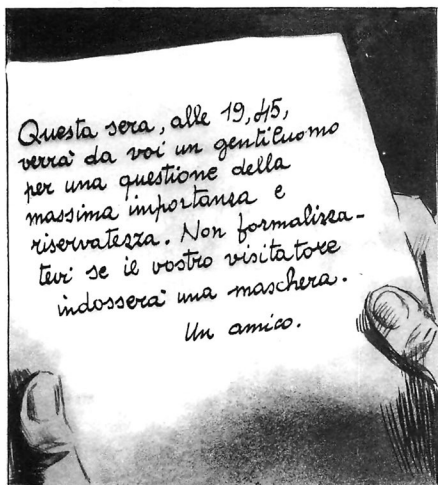 Questa sera, alle 19,45,
verrà da voi un gentiluomo
per una questione della
massima importanza e
riservatezza. Non formalizza-
tevi se il vostro visitatore
indosserà una maschera.
Un amico.